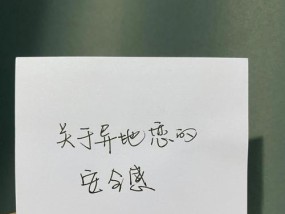 关于异地恋的
安全感